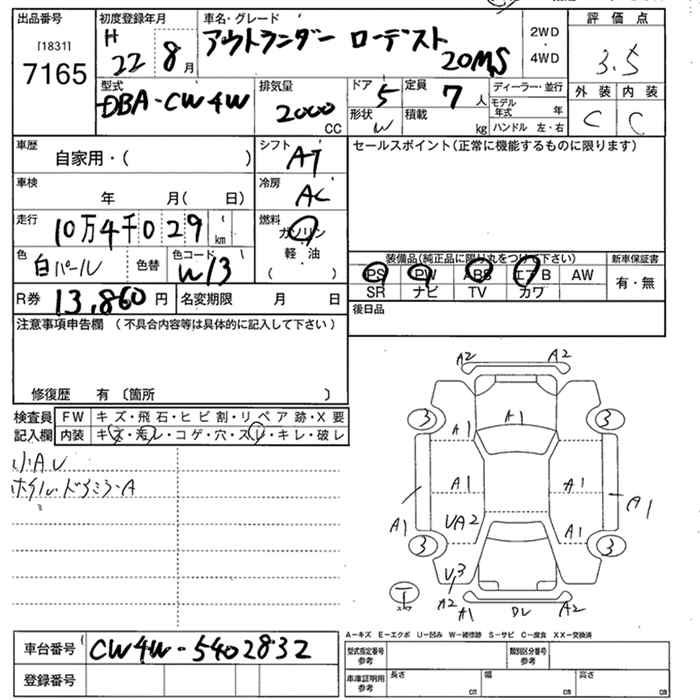 出品番号
[1831]
7165
初度登録年月
H 22 8 月
車名・グレード
アウトランダー ローデスト
20MS
2WD
・
4WD
評価点
3.5
外装 内装
C C
型式
DBA-CW4W
排気量
2000
CC
ドア
5
定員
7 人
形状
W
積載
kg
ディーラー・並行
モデル年式 年
ハンドル 左・右
車歴
自家用・( )
シフト
AT
セールスポイント(正常に機能するものに限ります)
車検
年 月( 日)
冷房
AC
走行
10万4千029 km
燃料
ガソリン
軽・油
( )
色
白パール
色替
色コード
W13
装備品(純正品に限り丸をつけて下さい)
PS PW ABS エアB AW
SR ナビ TV カワ
新車保証書
有・無
R券
13,860 円
名変期限 月 日
後日品
注意事項申告欄 (不具合内容等は具体的に記入して下さい)
修復歴 有 〔箇所 〕
検査員
記入欄
FW キズ・飛石・ヒビ割・リペア跡・X要
内装 キズ・汚レ・コゲ・穴・スレ・キレ・破レ
小AU
ホイル・ドアミラーA
A2 A2
3 3
A1
A1
A1 A1
A1 A1
UA2 A1
3 3
U3
A2 A1 A2
車台番号
CW4W-5402832
登録番号
A-キズ E-エクボ U-凹み W-補修跡 S-サビ C-腐食 XX-交換済
型式指定番号
参考
類別区分番号
参考
車庫証明用
参考
長さ cm
幅 cm
高さ cm